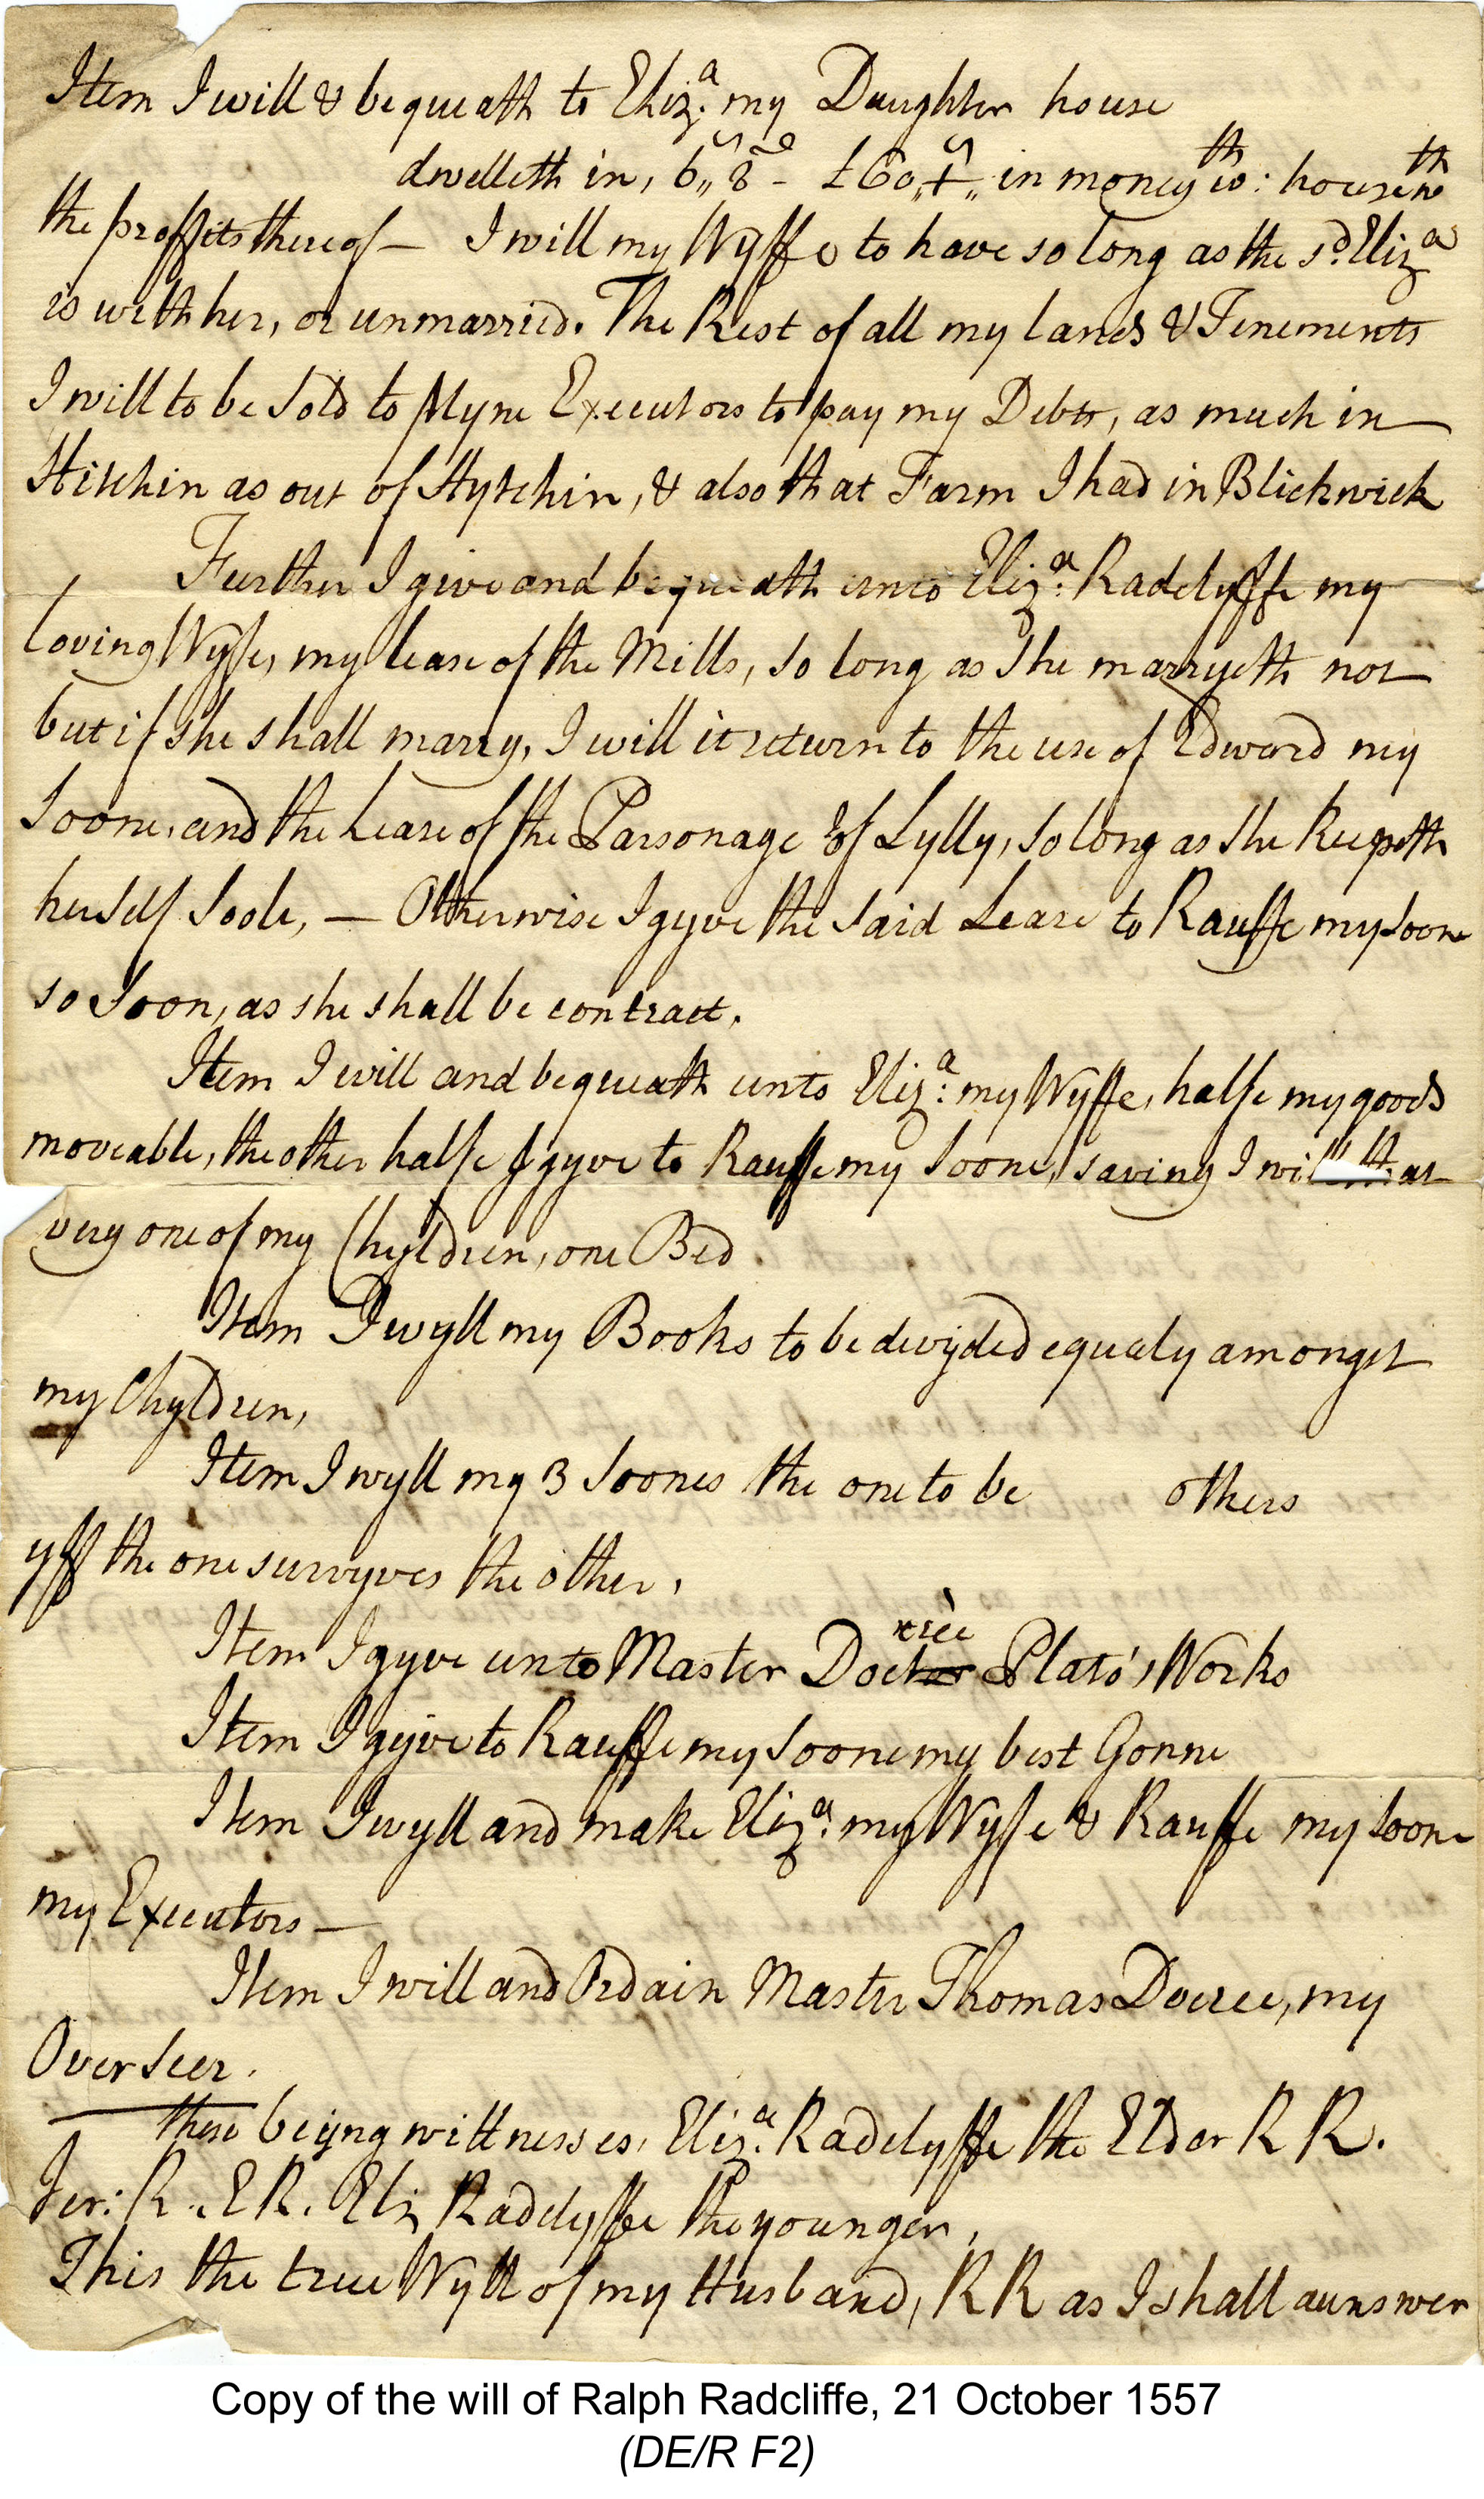 Item I will & bequeath to Eliz.a my Daughter house
dwelleth in, 6s,, 8d - £60,, in money wth: house wth
the proffits thereof — I will my Wyffe to have so long as the sd. Eliza
is with her, or unmarried. The Rest of all my lands & Tenements
I will to be Sold to Myne Executors to pay my Debts, as much in
Hitchin as out of Hytchin, & also that Farm I had in Blickwick
Further I give and bequeath unto Eliz.a Radclyffe my
loving Wyfe, my lease of the Mills, so long as She marryeth not
but if she shall marry, I will it return to the use of Edward my
Soone, and the Lease of the Parsonage of Lylly, so long as she Keepeth
herself Soole, — Otherwise I gyve the Said Lease to Rauffe my Soone
so Soon, as she shall be contract.
Item I will and bequeath unto Eliz.a: my Wyffe, halfe my goods
moveable, the other halfe I gyve to Rauffe my Soone, saving I will that
very one of my Chyldren, one Bed.
Item I wyll my Books to be devyded equaly amongst
my Chyldren,
Item I wyll my 3 Soones the one to be others
yff the one survyves the other,
Item I gyve unto Master Doctor Plato's Works
Item I gyve to Rauffe my Soone my best Gonne
Item I wyll and make Eliz.a: my Wyfe & Rauffe my Soone
my Executors —
Item I will and Ordain Master Thomas Docree, my
Over Seer.
these beijng wittnesses, Eliz.a Radclyffe the Elder R R.
Jer: R. E R. Eliz Radclyffe the younger,
This the true Wyll of my Husband, R R as I shall aunswer
Copy of the will of Ralph Radcliffe, 21 October 1557
(DE/R F2)